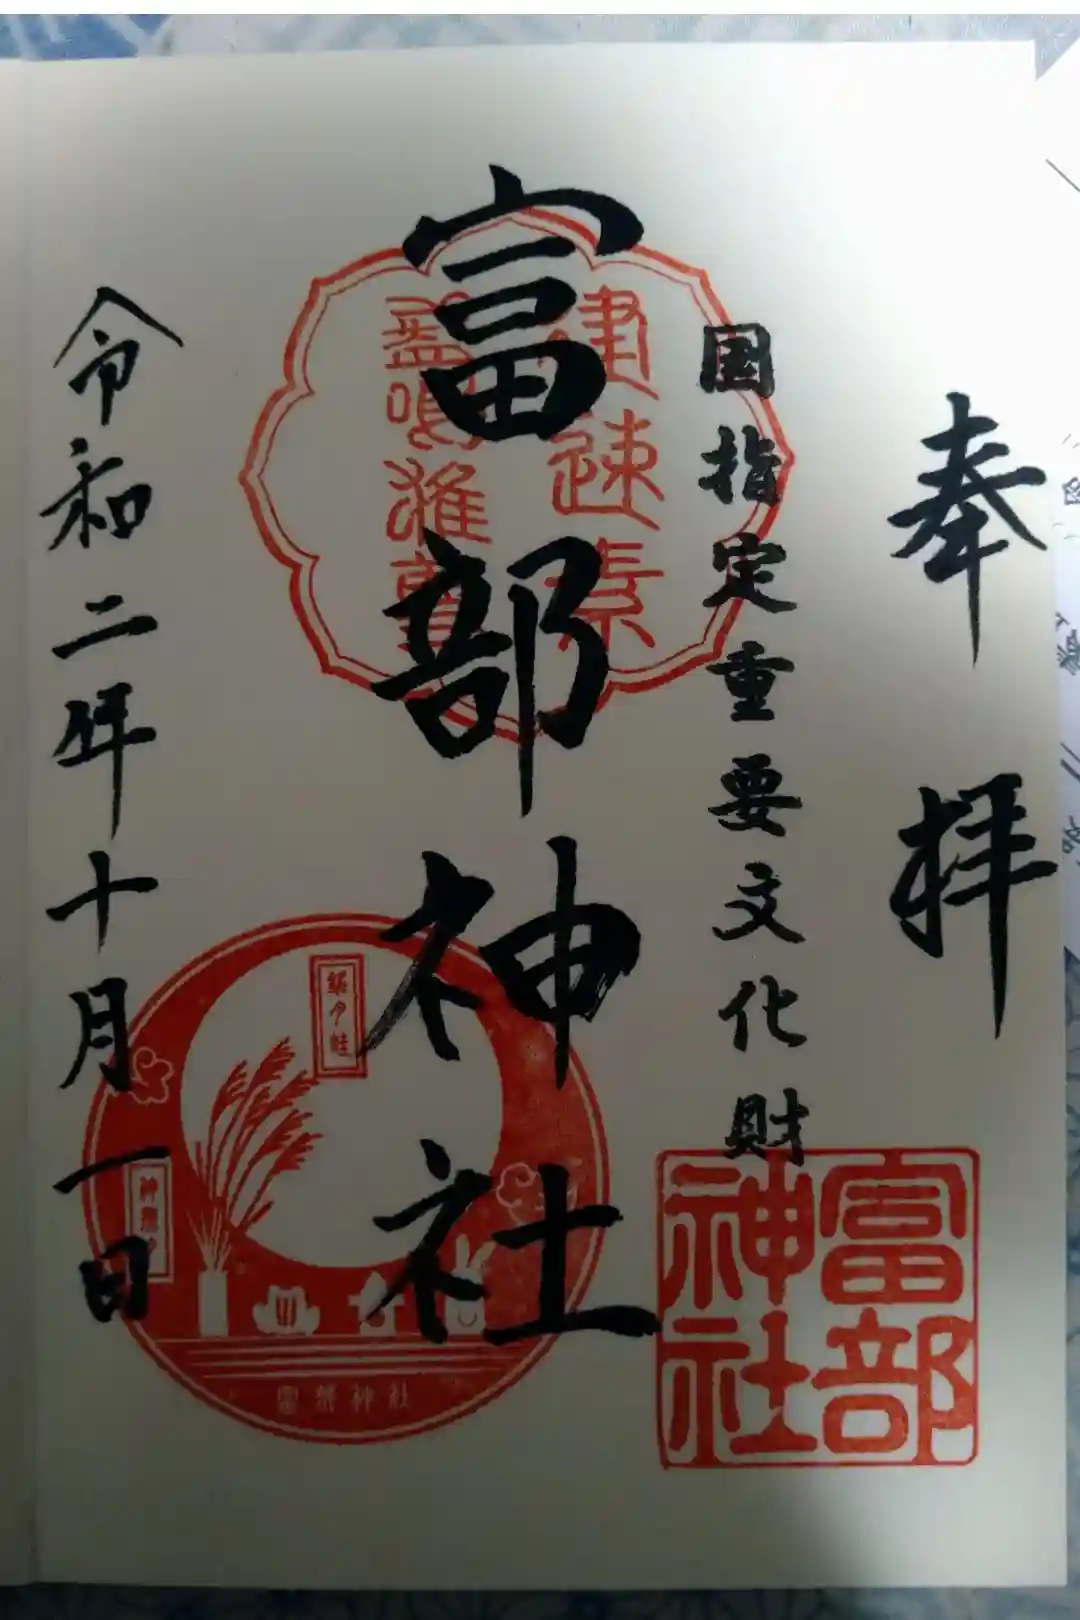 奉拝
国指定重要文化財
富部神社
建速素
盞嗚進尊
富部
神社
令和二年十月一日
富部神社